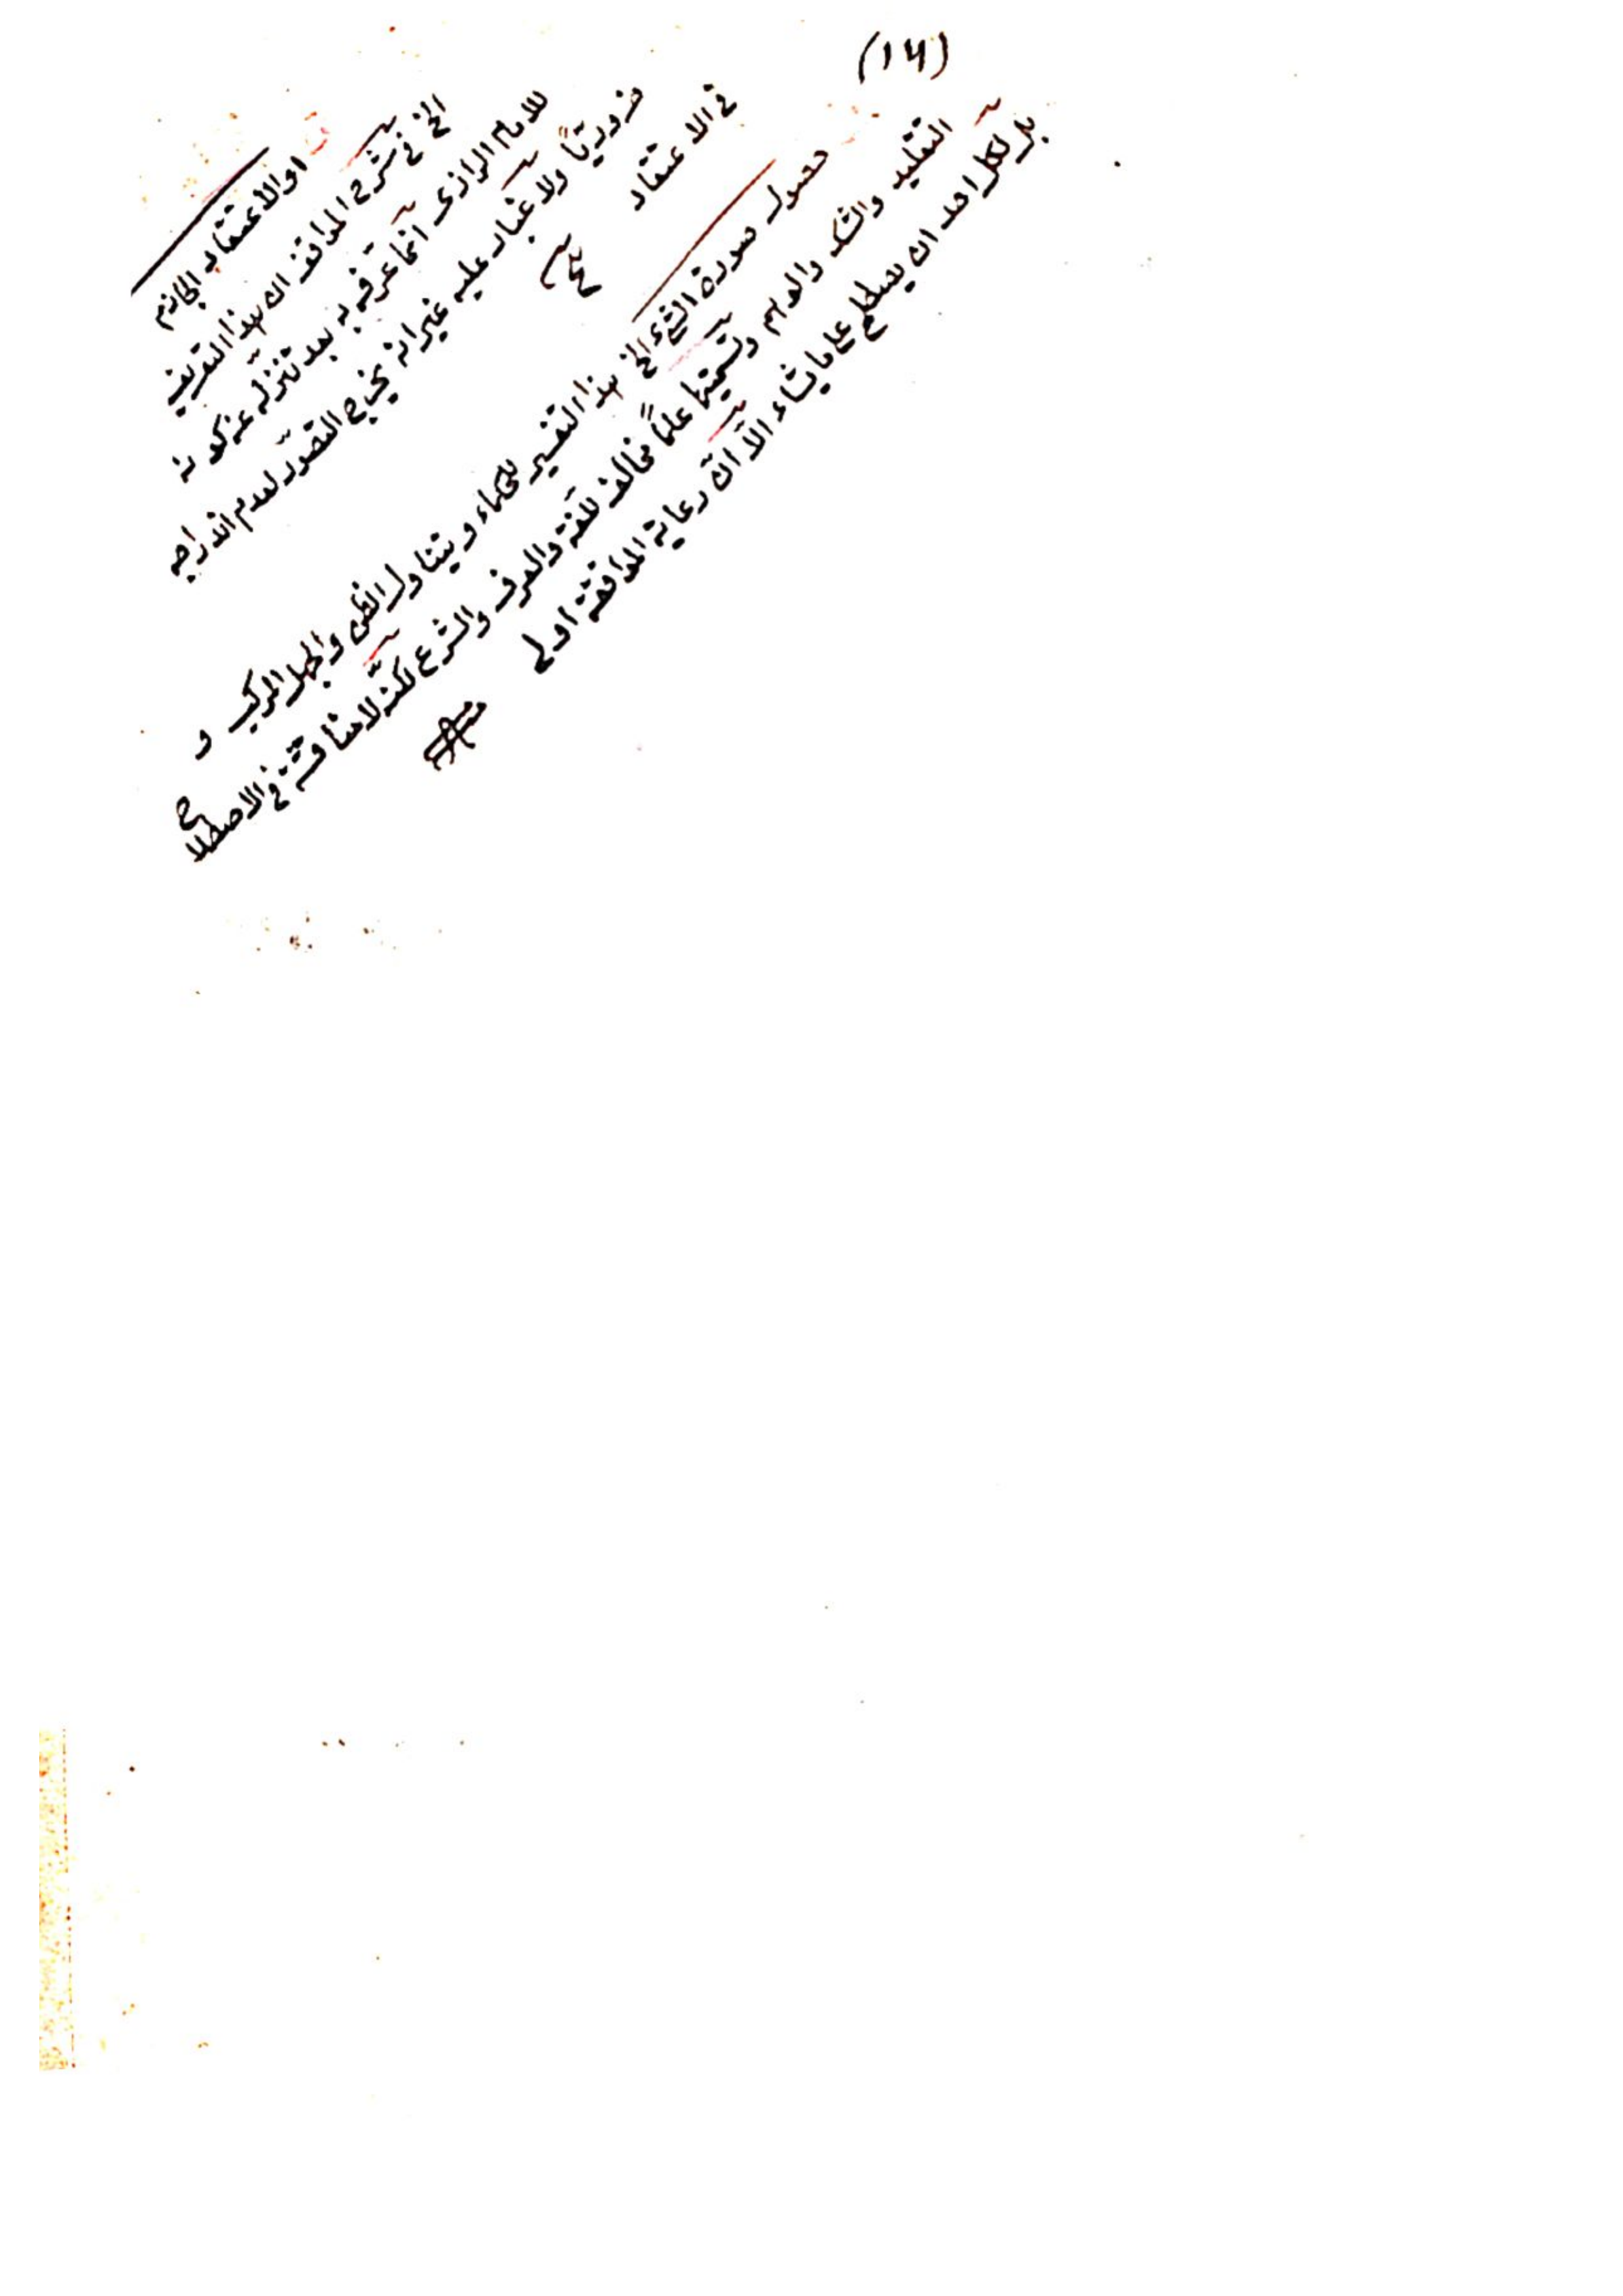 (١٤)
او الاعتقاد الجازم
الخ في شرح المواقف ان هذا التعريف
للامام الرازى انما عرفه به بعد تنزله عن كونه
ضروريًّا ولا غبار عليه غير انه يخرج التصوّر لعدم اندراجه
في الاعتقاد
حصول صورة الشئ الخ هذا التفسير للحكماء ويتناول الظن والجهل المركب و
التقليد والشك والوهم وتسميتها علمًا مخالف للغة والعرف والشرع لكنّه لا مشاقة في الاصطلاح
بل لكل احد ان يصطلح على ما يشاء الّا انّ رعاية الموافقة اولى